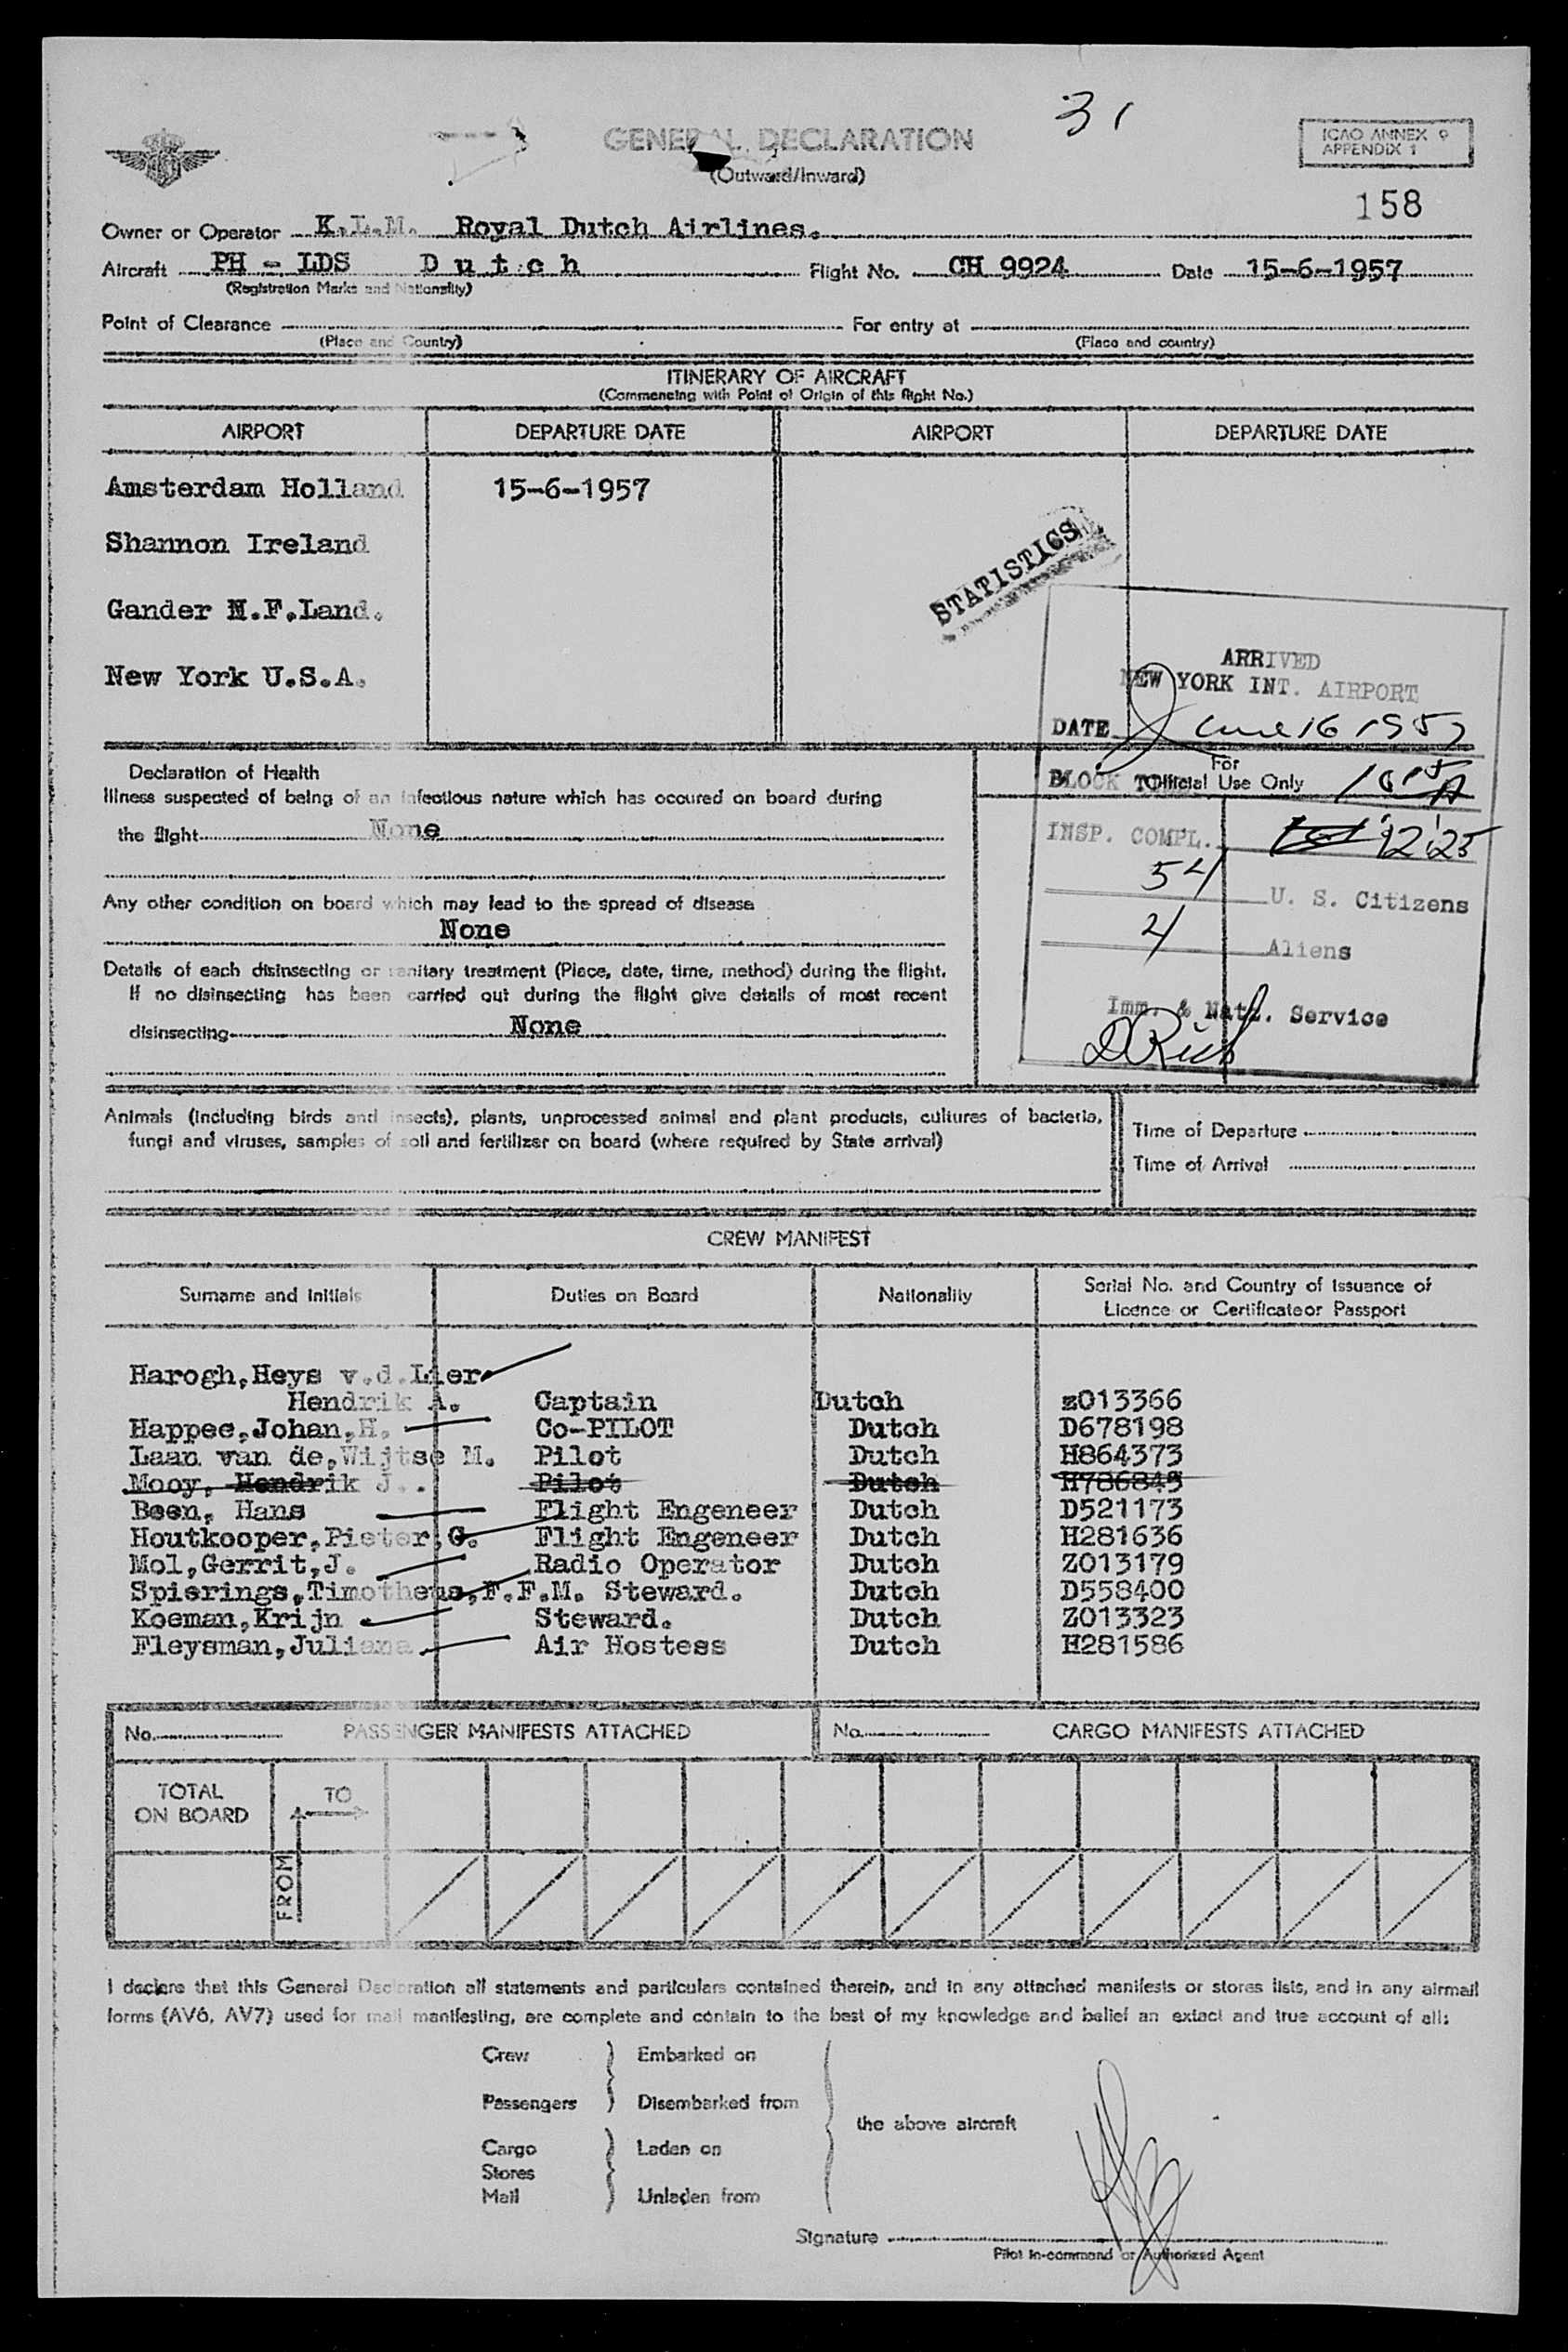 31
GENERAL DECLARATION
(Outward/Inward)
ICAO ANNEX 9
APPENDIX 1
158
Owner or Operator K.L.M. Royal Dutch Airlines.
Aircraft PH - LDS Dutch Flight No. CH 9924 Date 15-6-1957
(Registration Marks and Nationality)
Point of Clearance For entry at
(Place and Country) (Place and country)
ITINERARY OF AIRCRAFT
(Commencing with Point of Origin of this flight No.)
AIRPORT DEPARTURE DATE AIRPORT DEPARTURE DATE
Amsterdam Holland 15-6-1957
Shannon Ireland
Gander N.F.Land.
New York U.S.A.
STATISTICS
ARRIVED
NEW YORK INT. AIRPORT
DATE June 16 1957
For
Official Use Only
BLOCK
INSP. COMPL. 12:25
54 U. S. Citizens
4 Aliens
Imm. & Natz. Service
D Rich
Declaration of Health
Illness suspected of being of an infectious nature which has occured on board during
the flight None
Any other condition on board which may lead to the spread of disease
None
Details of each disinsecting or sanitary treatment (Place, date, time, method) during the flight.
If no disinsecting has been carried out during the flight give details of most recent
disinsecting None
Animals (including birds and insects), plants, unprocessed animal and plant products, cultures of bacteria,
fungi and viruses, samples of soil and fertilizer on board (where required by State arrival)
Time of Departure
Time of Arrival
CREW MANIFEST
Surname and Initials Duties on Board Nationality Serial No. and Country of Issuance of
Licence or Certificateor Passport
Harogh,Heys v.d.Lier
Hendrik A. Captain Dutch z013366
Happee,Johan,H. Co-PILOT Dutch D678198
Laan van de,Wijtse M. Pilot Dutch H864373
Mooy, Hendrik J.. Pilot Dutch H786845
Been, Hans Flight Engeneer Dutch D521173
Houtkooper,Pieter,G. Flight Engeneer Dutch H281636
Mol,Gerrit,J. Radio Operator Dutch Z013179
Spierings,Timotheus,F.F.M. Steward. Dutch D558400
Koeman,Krijn Steward. Dutch Z013323
Fleysman,Juliana Air Hostess Dutch H281586
No. PASSENGER MANIFESTS ATTACHED No. CARGO MANIFESTS ATTACHED
TOTAL
ON BOARD
TO
FROM
I declare that this General Declaration all statements and particulars contained therein, and in any attached manifests or stores lists, and in any airmail
forms (AV6, AV7) used for mail manifesting, are complete and contain to the best of my knowledge and belief an extact and true account of all:
Crew Embarked on
Passengers Disembarked from
the above aircraft
Cargo Laden on
Stores
Mail Unladen from
Signature
Pilot in-command or Authorized Agent